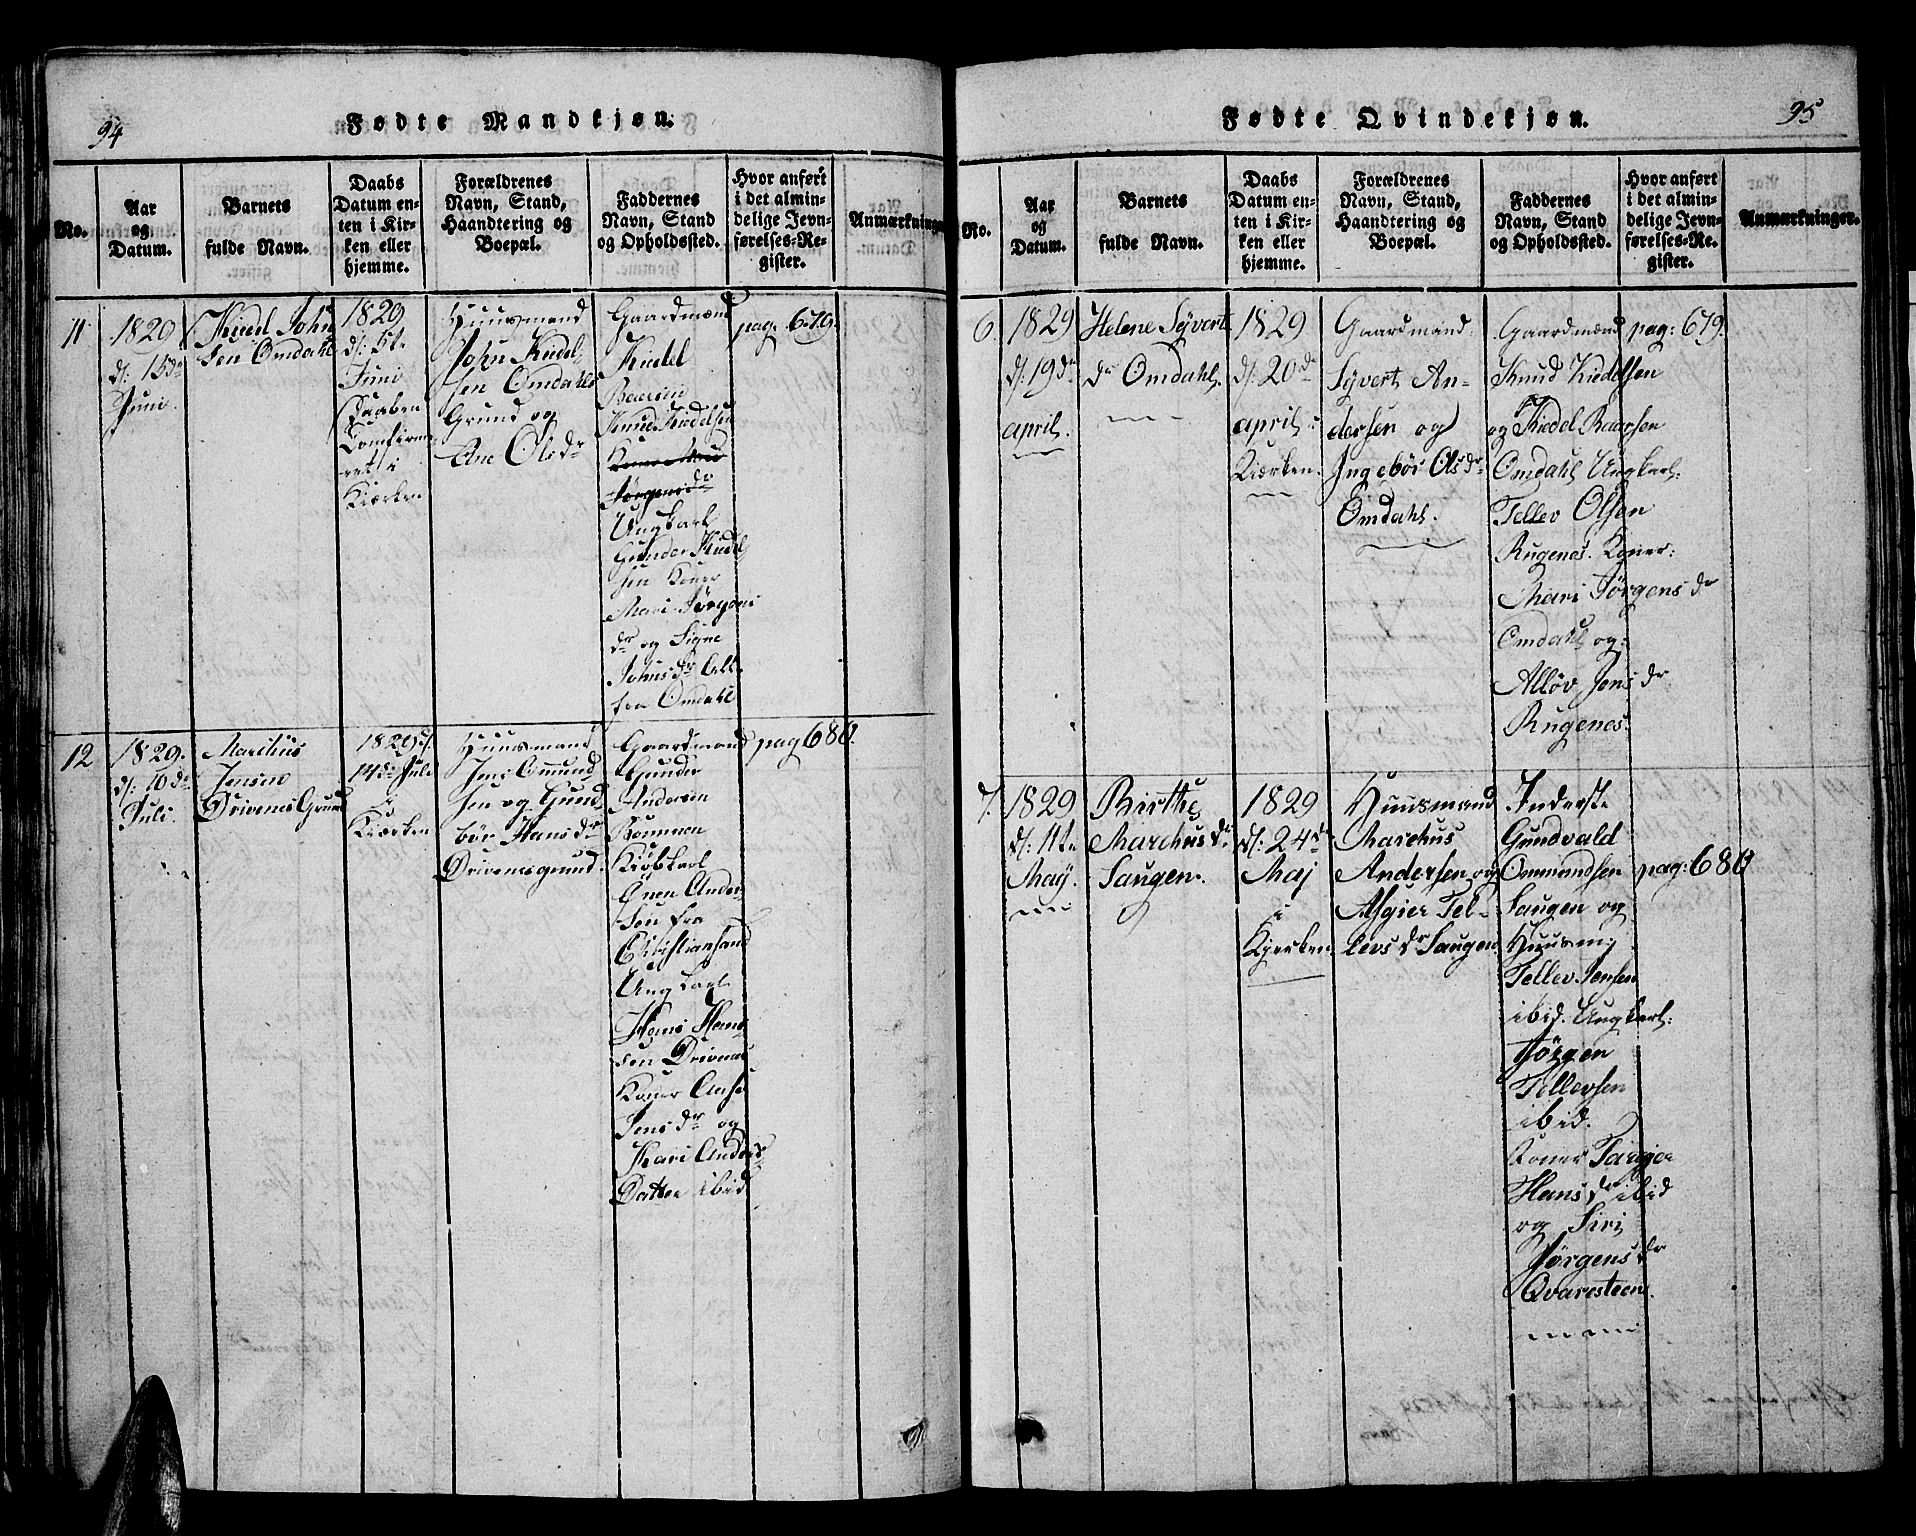 94
Fødte Mandkjøn.
No.
Aar
og
Datum.
Barnets
fulde Navn.
Daabs
Datum en-
ten i Kir-
ken eller
hjemme.
Forældrenes
Navn, Stand,
Haandtering og
Boepæl.
Faddernes
Navn, Stand
og Opholdssted.
Hvor anført
i det almin-
delige Jevn-
førelses-Re-
gister.
Anmærkninger
11
1829
d: 15de
Juni.
Kiedel John
sen Omdahl
1829
Juni
i
Kiærken
Huusmand
John Kiedel
sen Omdahls
Grund og
Ane Olsdr
Gaardmænd
Kiedel
Knud Kiedelsen
Jørgensdr
Ungkarl
Gunder Kiedel
sen Koner
Mari Jørgens
dr og Signe
Johnsdr
fra Omdahl
pag: 679.
12
1829.
d: 10de
Juli.
Marchus
Jensen
Drivenes Grund
1829 d.
Juli
i
Kiærken
Huusmand
Jens Omund
sen og Gund
bør Hansdr
Drivenesgrund.
Gaardmand
Gunder
Andersen
Ander-
sen fra
Christiansand
Ungkarl
Hans Hans
sen Drivenes
Koner
Jensdr og
Kari Anders
Datter ibid
pag 680.
95
Fødte Qvindekjøn.
No.
Aar
og
Datum.
Barnets
fulde Navn.
Daabs
Datum en-
ten i Kir-
ken eller
hjemme.
Forældrenes
Navn, Stand,
Haandtering og
Boepæl.
Faddernes
Navn, Stand
og Opholdssted.
Hvor anført
i det almin-
delige Jevn-
førelses-Re-
gister.
Anmærkninger.
6.
1829
d: 19de
april.
Helene Syvert
dr Omdahl.
1829
d: 20de
april:
Kiærken.
Gaardmand:
Syvert An-
dersen og
Ingebør Olsdr
Omdahl.
Gaardmænd
Knud Kiedelsen
og Kiedel Baarsen
Omdahl Ungkarl:
Tellev Olsen
Rugenes. Koner:
Mari Jørgensdr
Omdahl og:
Alløv Jensdr
Rugenes.
pag: 679.
7.
1829
d: 11te
May.
Birthe
Marchusdr
Saugen.
1829
d: 24de
Maj
i
Kjerken
Huusmand
Marchus
Andersen og
Asgier Tel-
levsdr Saugen
Inderste
Gundvald
Ommundsen
Saugen og
Huusm:
Tellev Jensen
ibid. Ungkarl:
Jørgen
Tellevsen
ibid.
Koner
Hansdr ibid
og Siri
Jørgensdr
Qvaresteen.
pag: 680